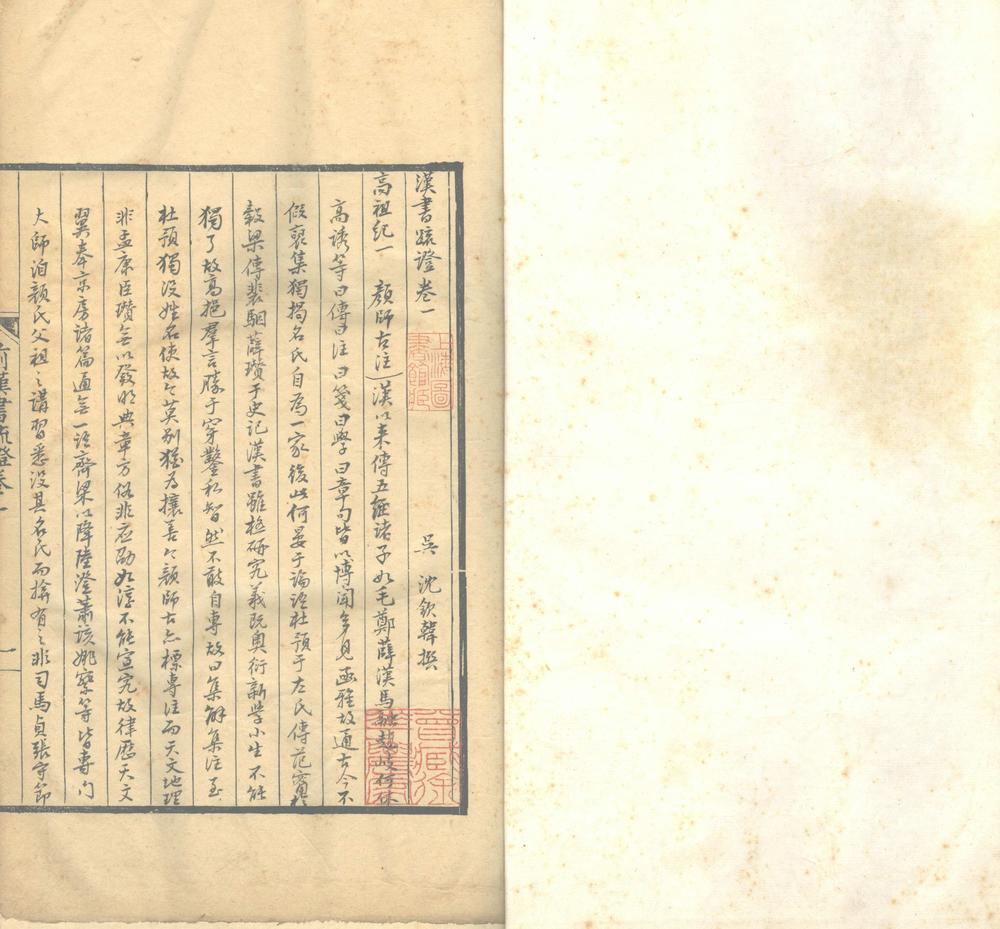 漢書疏證卷一
吳 沈欽韓撰
高祖紀一 顏師古注 漢以來傳五經諸子如毛鄭薛漢馬融趙岐何休
高誘等曰傳曰注曰箋曰學曰章句皆以博聞多見函雅故通古今不
假裒集獨揭名氏自為一家後此何晏于論語杜預于左氏傳范甯於
穀梁傳裴駰薛瓚于史記漢書雖極研究義既奧衍新學小生不能
獨了故高挹羣言勝于穿鑿私智然不敢自專故曰集解集注至
杜預獨沒姓名使故今莫別猶為攘善今顏師古亦標專注而天文地理
非孟康臣瓚無以發明典章方俗非应劭如淳不能宣究故律歷天文
翼奉京房諸篇通無一語齊梁以降陸澄蕭該姚察等皆專門
大師洎顏氏父祖之講習悉沒其名氏而揜有之非司馬貞張守節
前漢書疏證卷一
一
上海圖書館藏